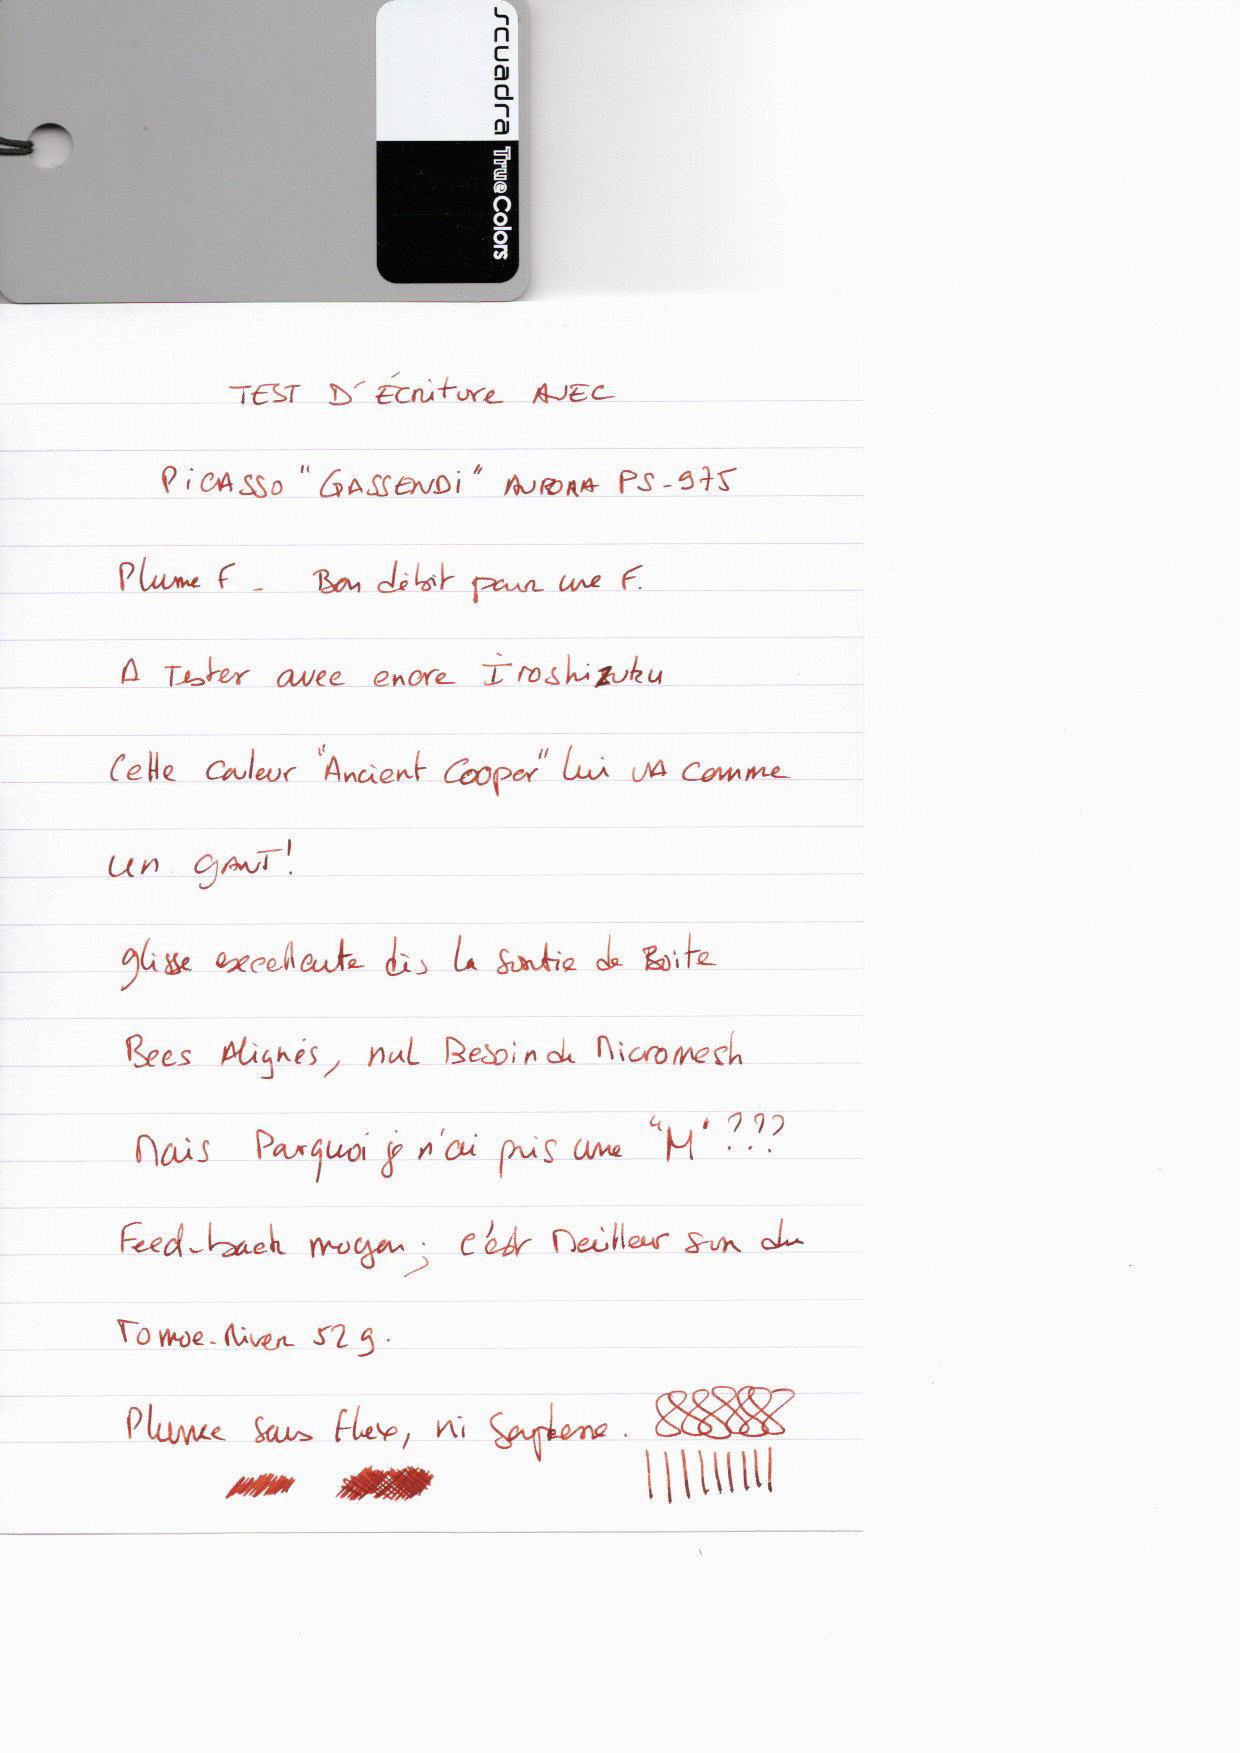 scuadra TrueColors
TEST D'ÉCriture AVEC
PiCASSO "GASSENDi" AURORA PS-975
Plume F - Bon débit pour une F.
A Tester avec encre Iroshizuku
Cette couleur "Ancient Cooper" lui vA comme
un gANT!
glisse excellente dès la sortie de Boite
Becs Alignés, nul Besoin de Micromesh
Mais Pourquoi je n'ai pris une "M" ???
Feed-back moyen; c'est Meilleur sur du
Tomoe-River 52 g.
Plume sans flex, ni souplesse.